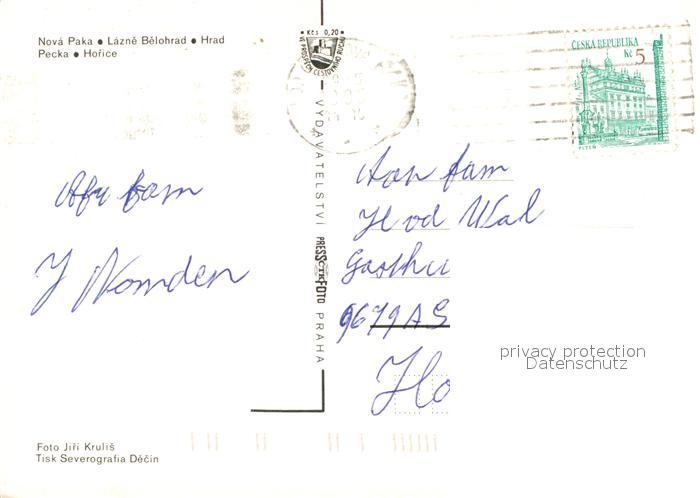 Nová Paka ● Lázně Bělohrad ● Hrad
Pecka ● Hořice
Kčs 0,20
VE PROSPĚCH CESTOVNÍHO RUCHU
ČESKÁ REPUBLIKA
Kč 5
PLZEŇ
VYDAVATELSTVÍ PRESSFOTO PRAHA
Afz fam
J Nomden
Aan fam
H vd Wal
9679 AS
privacy protection
Datenschutz
Foto Jiří Kruliš
Tisk Severografia Děčín